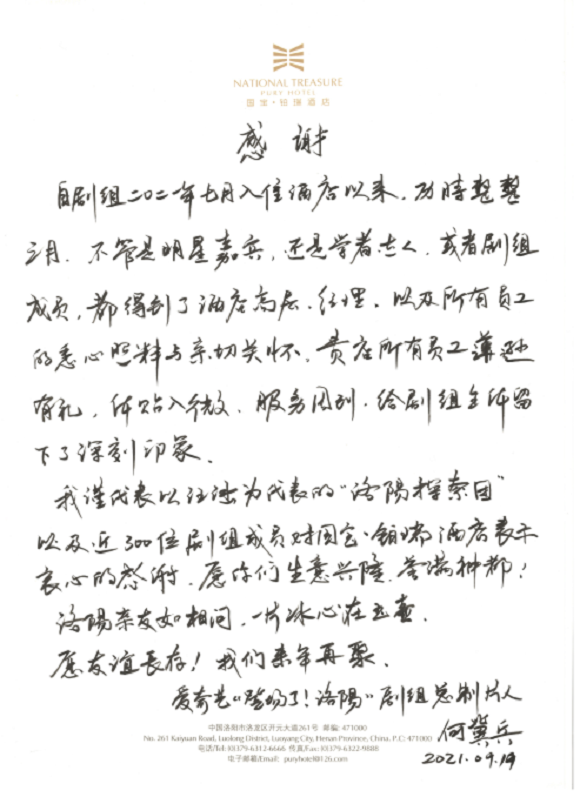 NATIONAL TREASURE
PURY HOTEL
国宝·铂瑞酒店
感谢
自剧组二〇二一年七月入住酒店以来，历时整整
三月．不管是明星嘉宾，还是学者达人，或者剧组
成员，都得到了酒店高层、经理，以及所有员工
的悉心照料与亲切关怀．贵店所有员工谦逊
有礼，体贴入微，服务周到，给剧组全体留
下了深刻印象．
我谨代表以汪涵为代表的“洛陽探索团”
以及近300位剧组成员对国宝·铂瑞酒店表示
衷心的感谢．愿你们生意兴隆，誉满神都！
洛陽亲友如相问，一片冰心在玉壶．
愿友谊长存！我们来年再聚．
爱奇艺“登场了！洛陽”剧组总制片人
何冀兵
2021.09.19
中国洛阳市洛龙区开元大道261号 邮编: 471000
No. 261 Kaiyuan Road, Luolong District, Luoyang City, Henan Province, China, P.C) 471000
电话/Tel:(0)379-6312-6666 传真/Fax:(0)379-6322-9888
电子邮箱/Email: puryhotel@126.com